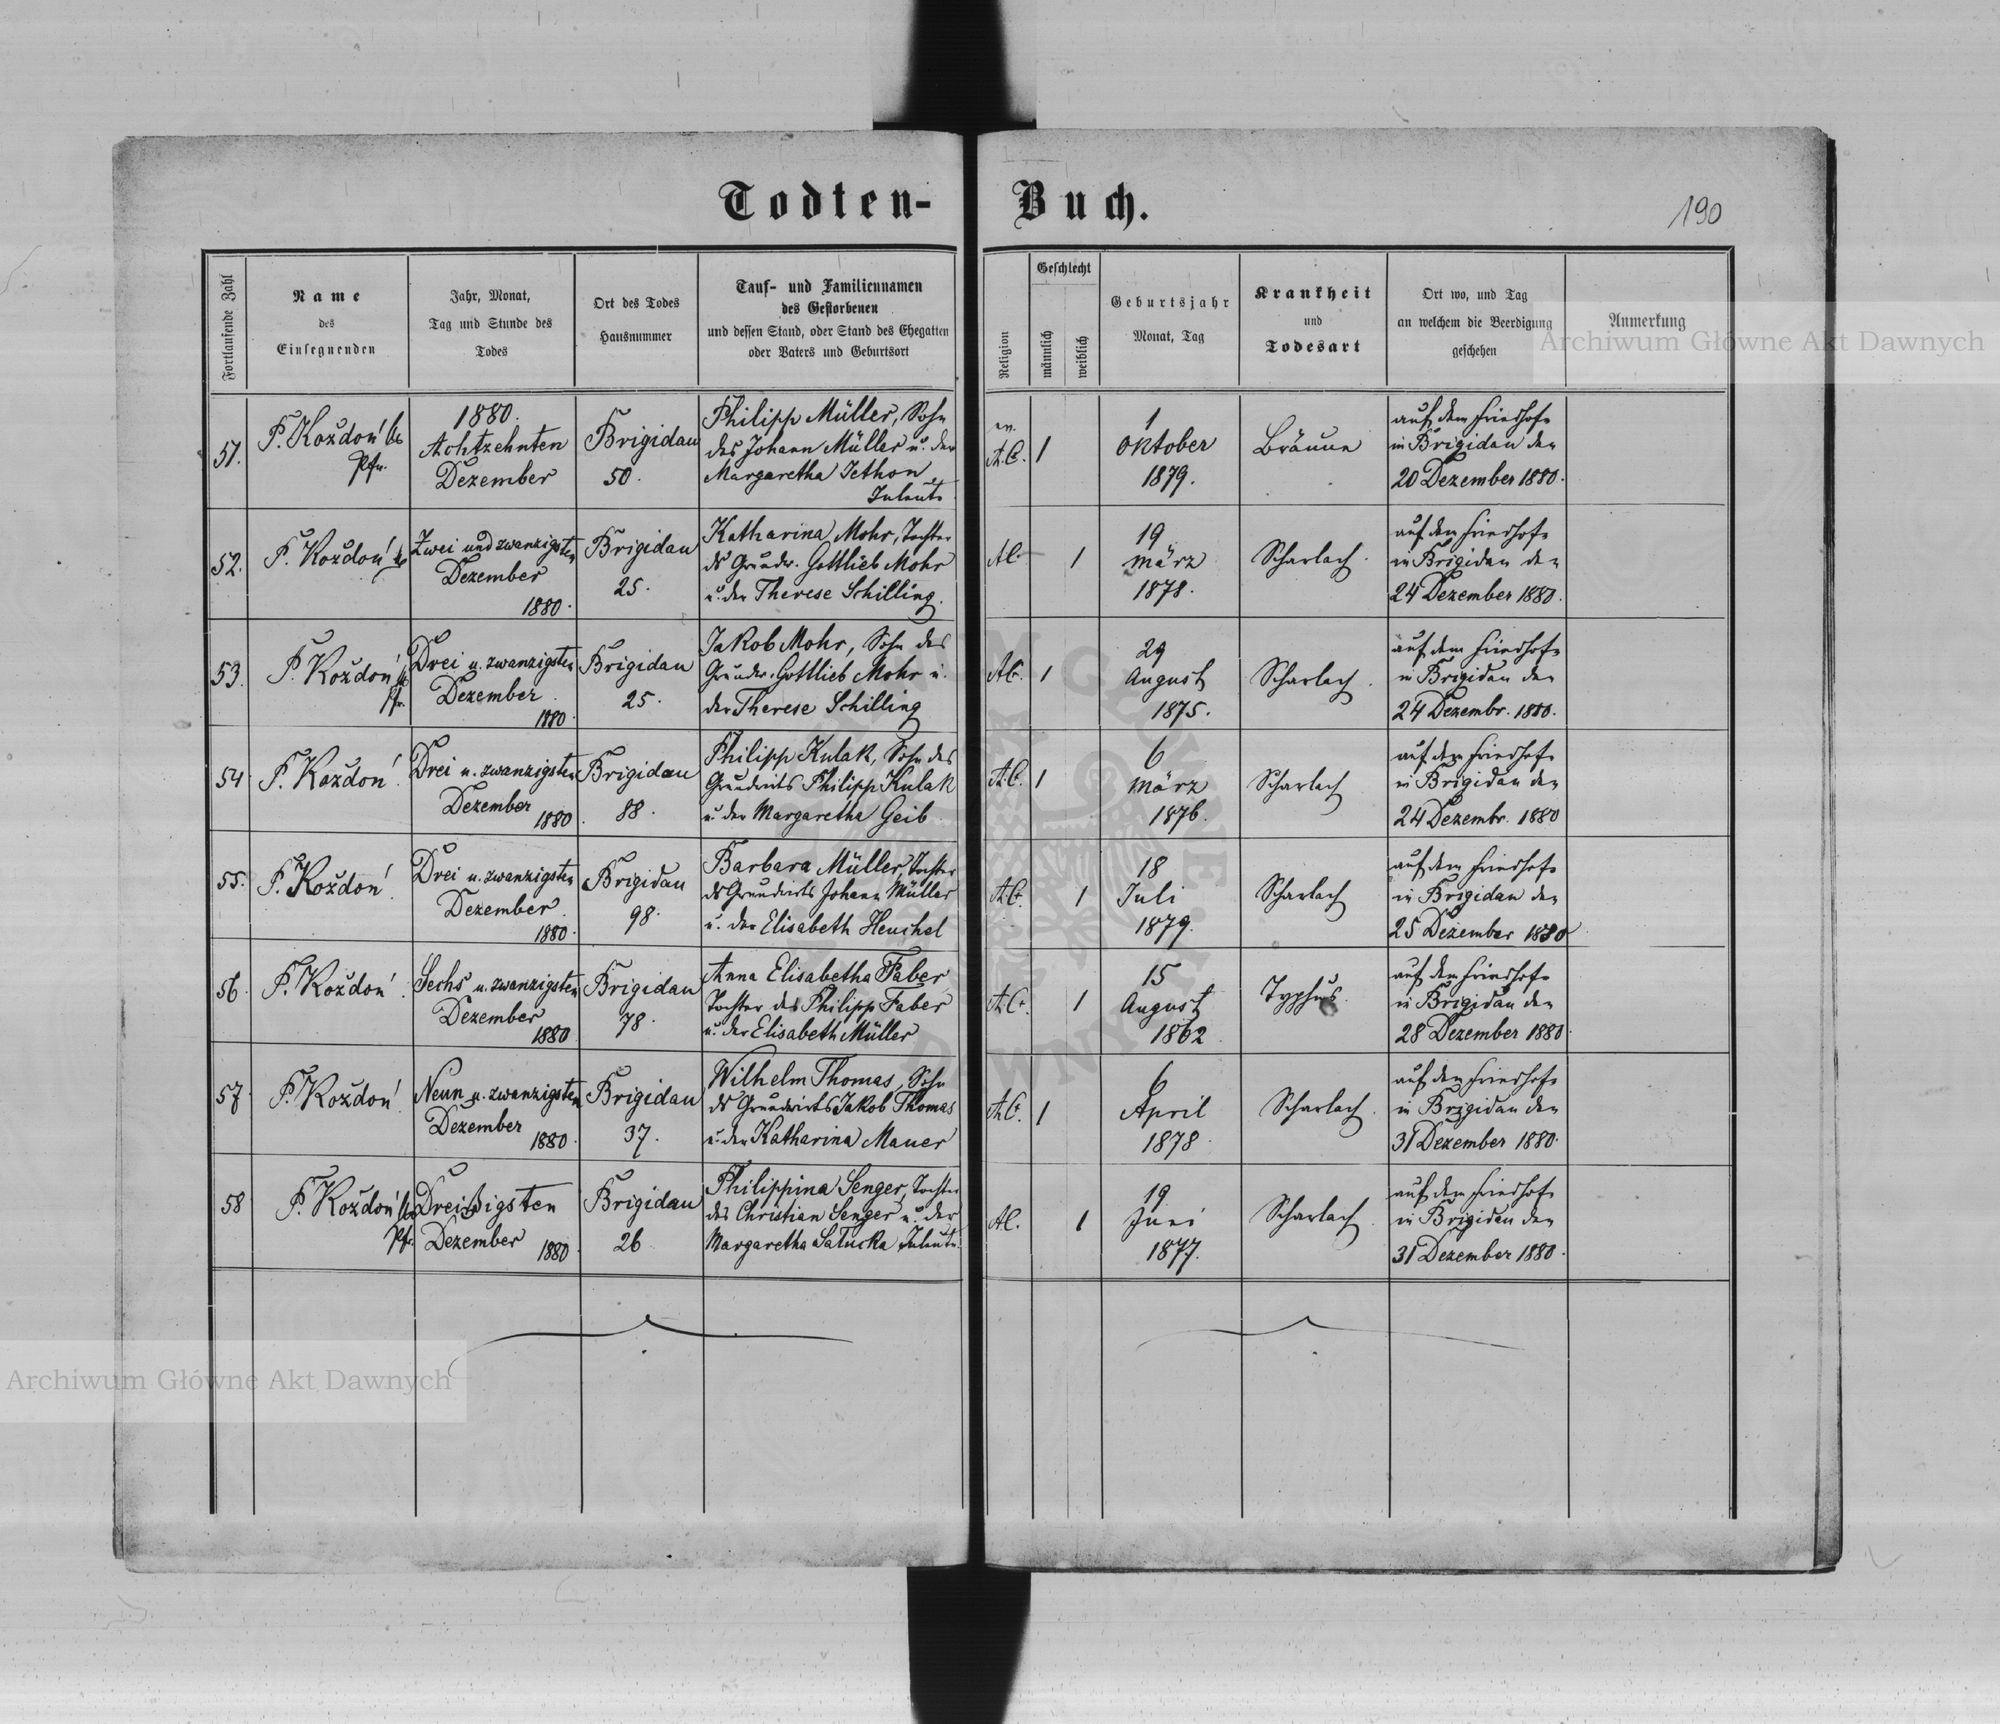 Todten-Buch.
190
Fortlaufende Zahl
Name
des
Einsegnenden
Jahr, Monat,
Tag und Stunde des
Todes
Ort des Todes
Hausnummer
Tauf- und Familiennamen
des Gestorbenen
und dessen Stand, oder Stand des Ehegatten
oder Vaters und Geburtsort
Religion
Geschlecht
männlich
weiblich
Geburtsjahr
Monat, Tag
Krankheit
und
Todesart
Ort wo, und Tag
an welchem die Beerdigung
geschehen
Anmerkung
51.
F. Koždoń
Pfr.
1880.
Achtzehnten
Dezember
Brigidau
50.
Philipp Müller, Sohn
des Johann Müller u. der
Margaretha Jethon
Inleute
ev.
A.C.
1
1
Oktober
1879.
Bräune
auf dem Friedhofe
in Brigidau den
20 Dezember 1880.
52.
F. Koždoń
Zwei und zwanzigsten
Dezember
1880.
Brigidau
25.
Katharina Mohr, Tochter
ds Grundw. Gottlieb Mohr
u. der Therese Schilling.
AC.
1
19
März
1878.
Scharlach.
auf dem Friedhofe
in Brigidau den
24 Dezember 1880.
53.
F. Koždoń
Pfr.
Drei u. zwanzigsten
Dezember
1880.
Brigidau
25.
Jakob Mohr, Sohn des
Grundw. Gottlieb Mohr u.
der Therese Schilling
AC.
1
29
August
1875.
Scharlach.
auf dem Friedhofe
in Brigidau den
24 Dezembr. 1880.
54
F. Koždoń
Drei u. zwanzigsten
Dezember
1880.
Brigidau
88.
Philipp Kulak, Sohn des
Grundwirts Philipp Kulak
u. der Margaretha Geib
A.C.
1
6
März
1876.
Scharlach
auf dem Friedhofe
in Brigidau den
24 Dezembr. 1880
55.
F. Koždoń
Drei u. zwanzigsten
Dezember.
1880.
Brigidau
98.
Barbara Müller, Tochter
ds Grundwirts Johann Müller
u. der Elisabeth Henchel
A.C.
1
18
Juli
1879.
Scharlach
auf dem Friedhofe
in Brigidau den
25 Dezember 1880
56.
F. Koždoń.
Sechs u. zwanzigsten
Dezember
1880
Brigidau
78.
Anna Elisabetha Faber
Tochter des Philipp Faber
u. der Elisabeth Müller
A.C.
1
15
August
1862
Typhus.
auf dem Friedhofe
in Brigidau den
28 Dezember 1880.
57.
F. Koždoń
Neun u. zwanzigsten
Dezember
1880.
Brigidau
37.
Wilhelm Thomas, Sohn
ds Grundwirts Jakob Thomas
u. der Katharina Mauer
A.C.
1
6
April
1878.
Scharlach.
auf dem Friedhofe
in Brigidau den
31 Dezember 1880.
58
F. Koždoń
Pfr.
Dreißigsten
Dezember
1880.
Brigidau
26
Philippina Senger, Tochter
des Christian Senger u. der
Margaretha Satucka Inleute.
AC.
1
19
Juni
1877.
Scharlach.
auf dem Friedhofe
in Brigidau den
31 Dezember 1880.
Archiwum Główne Akt Dawnych
Archiwum Główne Akt Dawnych